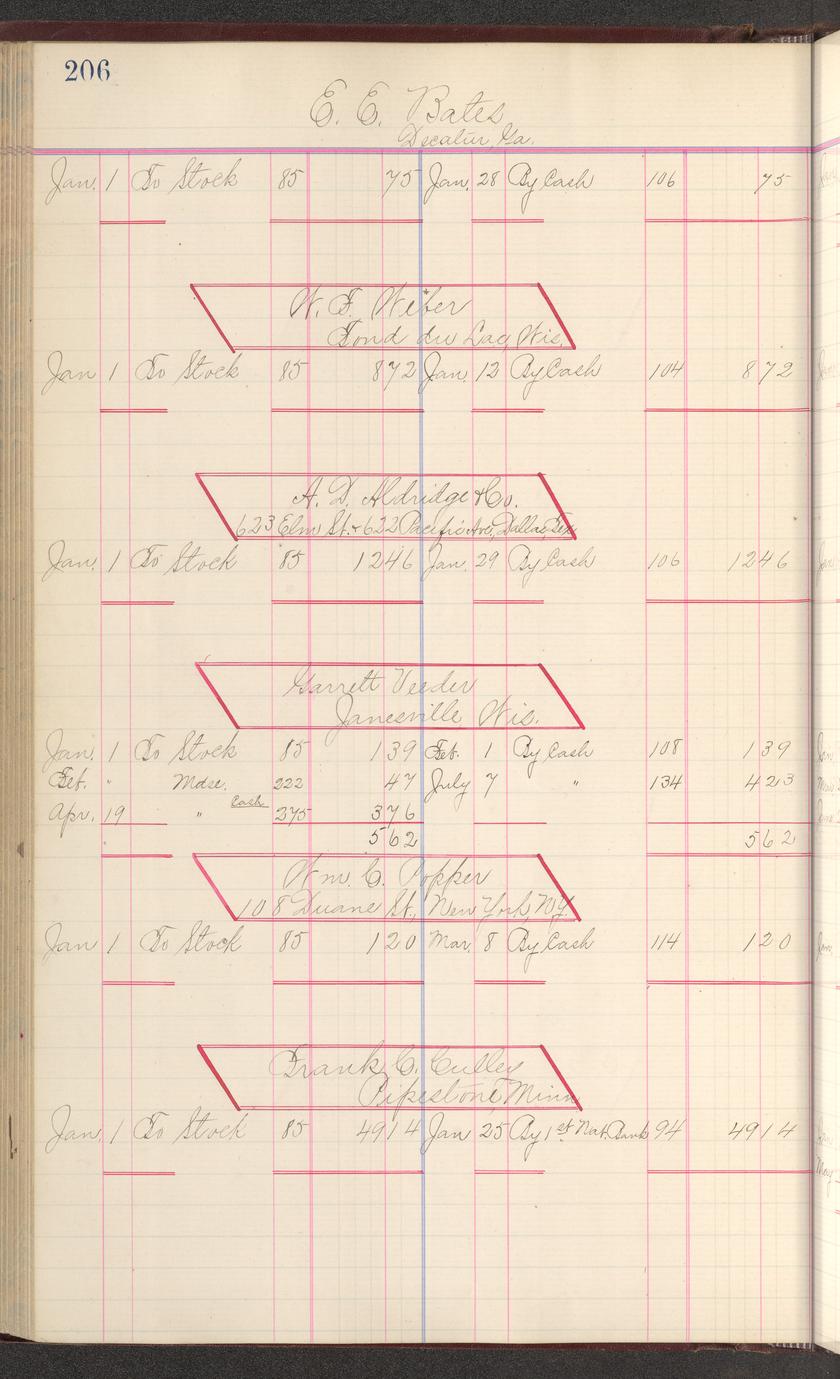 206
E. E. Bates
Decatur, Ga.
Jan. 1 To Stock 85 75 Jan. 28 By Cash 106 75
W. F. Weber
Fond du Lac, Wis.
Jan 1 To Stock 85 872 Jan. 12 By Cash 104 872
A. D. Aldridge & Co.
623 Elm St. & 622 Pacific Ave, Dallas, Tex
Jan. 1 To Stock 85 1246 Jan. 29 By Cash 106 1246
Garrett Veeder
Janesville Wis.
Jan. 1 To Stock 85 139 Feb. 1 By Cash 108 139
Feb. " Mdse. 222 47 July 7 " 134 423
Apr. 19 " Cash 275 376
562 562
Wm. C. Popper
108 Duane St., New York, N.Y.
Jan 1 To Stock 85 120 Mar. 8 By Cash 114 120
Frank C. Culley
Pipestone, Minn
Jan. 1 To Stock 85 4914 Jan 25 By 1st Nat. Bank 94 4914